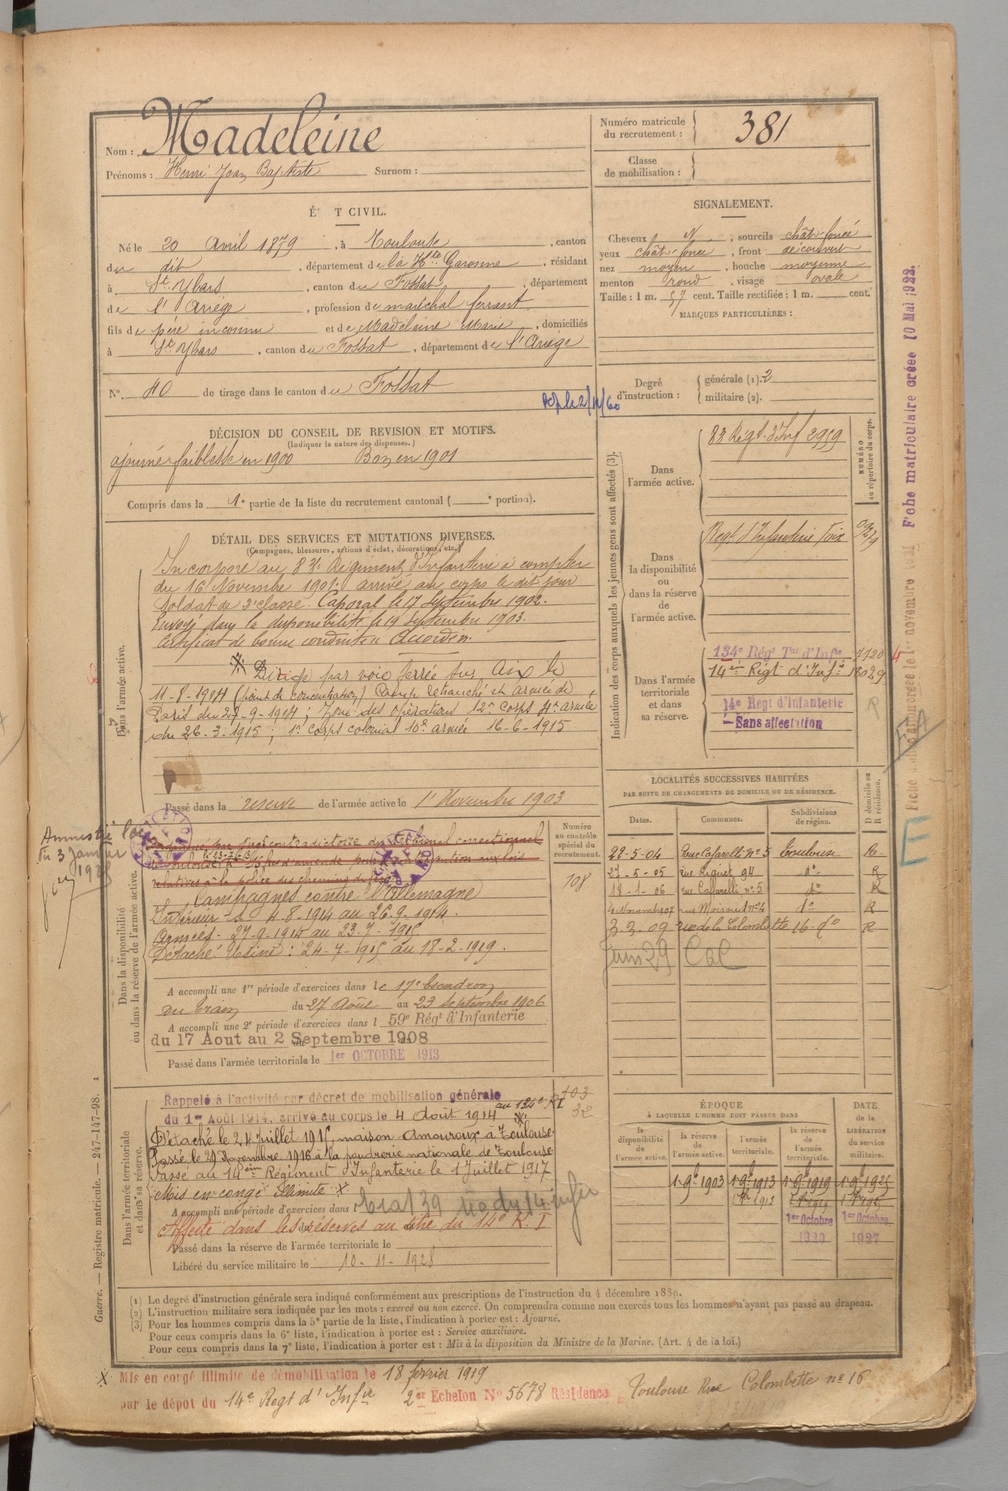 Nom : Madeleine
Prénoms : Henri Jean Baptiste Surnom :
Numéro matricule du recrutement : 381
Classe de mobilisation :
ÉTAT CIVIL.
Né le 20 Avril 1879, à Toulouse, canton
du dit, département de la Hte Garonne, résidant
à St Ybars, canton du Fossat, département
de l'Ariège, profession de maréchal ferrant
fils de père inconnu et de Madeleine Marie, domiciliés
à St Ybars, canton du Fossat, département de l'Ariège
N° 40 de tirage dans le canton du Fossat
SIGNALEMENT.
Cheveux N, sourcils chât foncé
yeux chât foncé, front découvert
nez moyen, bouche moyenne
menton rond, visage ovale
Taille : 1 m. 57 cent. Taille rectifiée : 1 m. cent.
MARQUES PARTICULIÈRES :
Degré d'instruction : générale (1). 2
militaire (2).
DÉCISION DU CONSEIL DE REVISION ET MOTIFS.
(Indiquer la nature des dispenses.)
ajourné faiblesse en 1900 Bon en 1901
Compris dans la 1e partie de la liste du recrutement cantonal ( e portion).
DÉTAIL DES SERVICES ET MUTATIONS DIVERSES.
(Campagnes, blessures, actions d'éclat, décorations, etc.)
Dans l'armée active.
Incorporé au 83e Régiment d'Infanterie à compter
du 16 Novembre 1901, arrivé au corps le dit jour
Soldat de 2e classe. Caporal le 17 Septembre 1902.
Envoyé dans la disponibilité le 19 Septembre 1903.
Certificat de bonne conduite Accordé.
Dirigé par voie ferrée sur Aix le
11-8-1914 (point de concentration) Camp retranché et armée de
Paris du 27-9-1914 ; Zone des opérations 12e corps 4e armée
du 26-3-1915 ; 1r corps colonial 10e armée 16-6-1915
Passé dans la réserve de l'armée active le 1r Novembre 1903
Indication des corps auxquels les jeunes gens sont affectés (3).
NUMÉRO au répertoire du corps.
Dans l'armée active.
83 Régt d'Inf 3959
Dans la disponibilité ou dans la réserve de l'armée active.
Régt d'Infanterie Foix
Dans l'armée territoriale et dans sa réserve.
134e Rég Tal d'Infie
14ème Régt d'Infie 18029
14e Regt d'Infanterie
Sans affectation
Fiche matriculaire créée 10 Mai 1922.
LOCALITÉS SUCCESSIVES HABITÉES
PAR SUITE DE CHANGEMENTS DE DOMICILE OU DE RÉSIDENCE.
Dates. Communes. Subdivisions de région. D domicile ou R résidence.
22-5-04 rue Cafarelli n° 5 Toulouse R
rue Riquet 94 do R
18-1-06 rue Cafarelli n° 5 do R
rue n° 4 do R
3-2-09 rue de la Colombette 16 do R
Juin 29
Dans la disponibilité ou dans la réserve de l'armée active.
Numéro au contrôle spécial du recrutement.
108
Amnistié loi
du 3 Janvier
1925
relatives à la police des chemins de fer
Campagnes contre l'Allemagne
Intérieur : 4-8-1914 au 26-9-1914.
Armées : 27-9-1914 au 23-7-1915
Détaché Usine : 24-7-1915 au 18-2-1919.
A accompli une 1re période d'exercices dans le 17e Escadron
du Train du 27 Août au 23 septembre 1906
A accompli une 2e période d'exercices dans l 59e Régt d'Infanterie
du 17 Aout au 2 Septembre 1908
Passé dans l'armée territoriale le 1er OCTOBRE 1913
Dans l'armée territoriale et dans sa réserve.
Rappelé à l'activité par décret de mobilisation générale
du 1er Août 1914, arrivé au corps le 4 Août 1914 au 134e RI
Détaché le 24 juillet 1915, maison Amouroux à Toulouse
Passé le 29 Novembre 1916 à la poudrerie nationale de Toulouse
Passé au 14ème Régiment d'Infanterie le 1 Juillet 1917
Mis en congé illimité X
A accompli une période d'exercices dans
Affecté dans les réserves au titre du 14e R. I
Passé dans la réserve de l'armée territoriale le
Libéré du service militaire le 10-11-1928
ÉPOQUE
À LAQUELLE L'HOMME DOIT PASSER DANS
la disponibilité de l'armée active. la réserve de l'armée active. l'armée territoriale. la réserve de l'armée territoriale. DATE de la LIBÉRATION du service militaire.
1-9e 1903 1-9e 1913 1-9e 1919
1er Octobre 1920 1er Octobre 1927
(1) Le degré d'instruction générale sera indiqué conformément aux prescriptions de l'instruction du 4 décembre 1889.
(2) L'instruction militaire sera indiquée par les mots : exercé ou non exercé. On comprendra comme non exercés tous les hommes n'ayant pas passé au drapeau.
(3) Pour les hommes compris dans la 5e partie de la liste, l'indication à porter est : Ajourné.
Pour ceux compris dans la 6e liste, l'indication à porter est : Service auxiliaire.
Pour ceux compris dans la 7e liste, l'indication à porter est : Mis à la disposition du Ministre de la Marine. (Art. 4 de la loi.)
Guerre. — Registre matricule. 247-147-98.
X Mis en congé illimité de démobilisation le 18 février 1919
par le dépot du 14e Regt d'Infie 2er Echelon N° 5678 Résidence Toulouse Rue Colombette n° 16